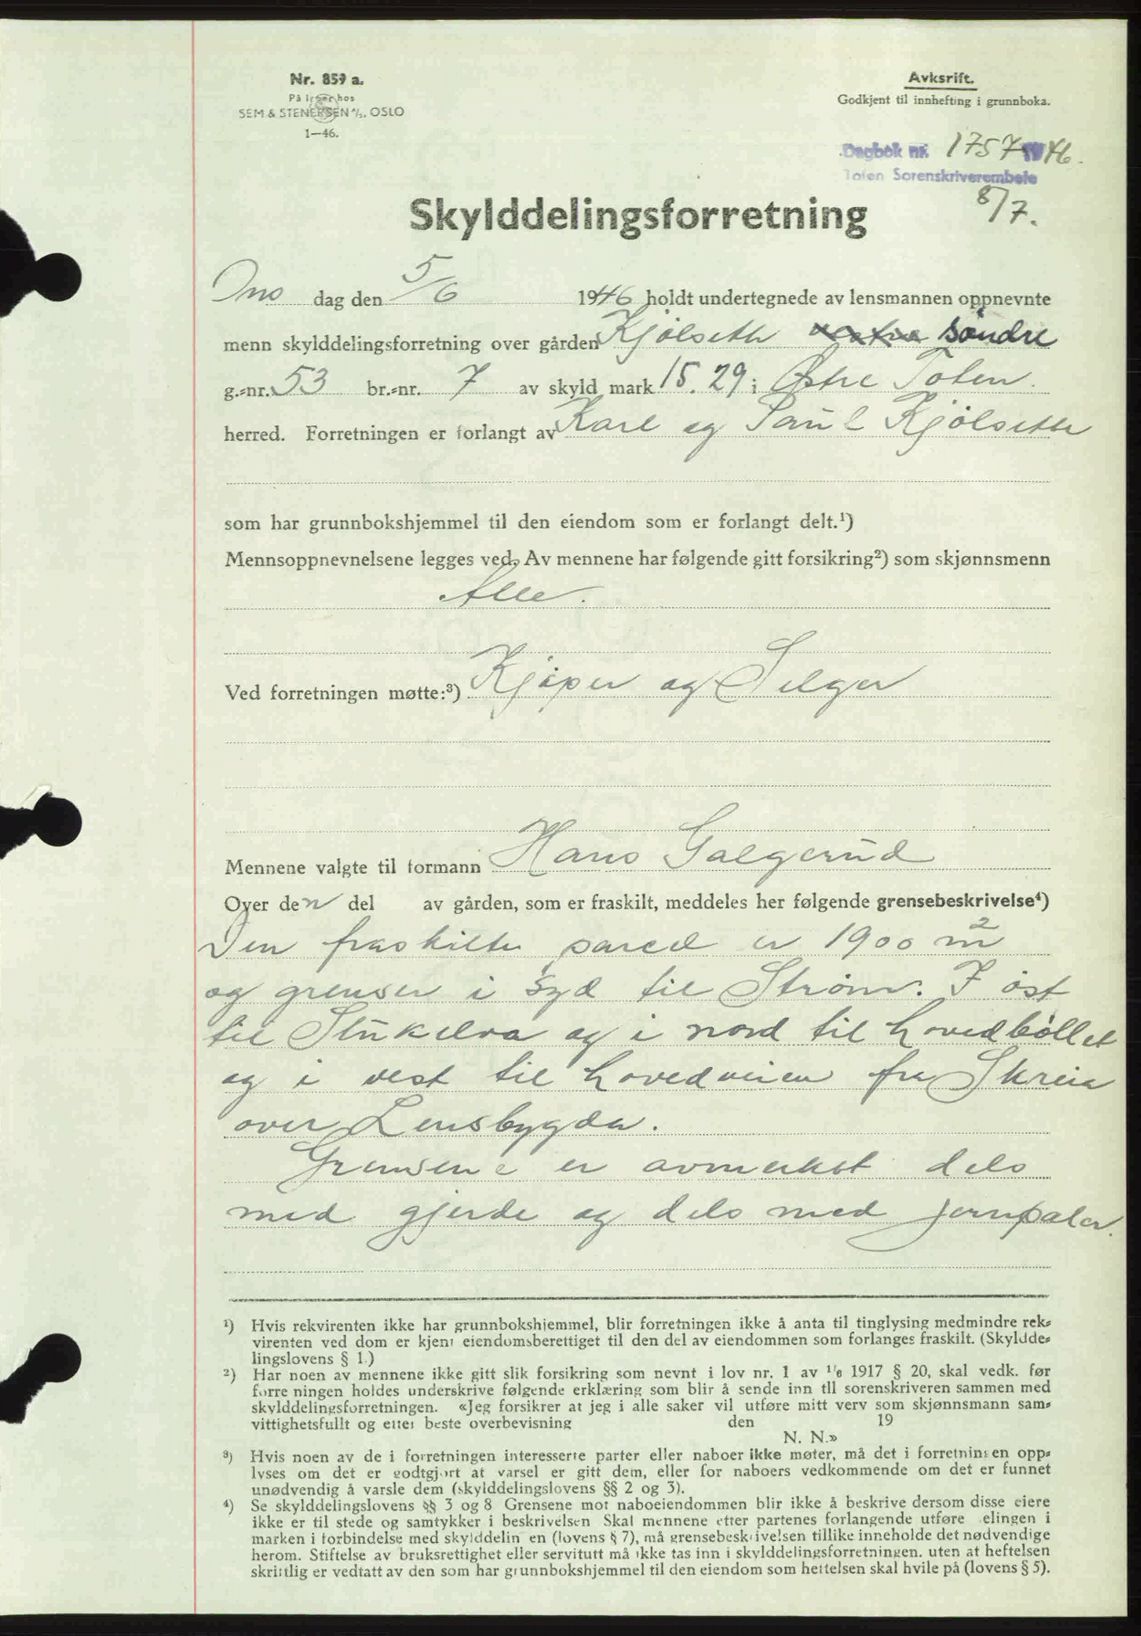 Nr. 859 a.
På lager hos
SEM & STENERSEN A/S, OSLO
1—46.
Avksrift.
Godkjent til innhefting i grunnboka.
Dagbok nr. 1757 1946.
Toten Sorenskriverembete
8/7.
Skylddelingsforretning
Ons dag den 5/6 1946 holdt undertegnede av lensmannen oppnevnte
menn skylddelingsforretning over gården Kjølseth søndre
g.-nr. 53 br.-nr. 7 av skyld mark 15.29 i Østre Toten
herred. Forretningen er forlangt av Karl og Paul Kjølseth
som har grunnbokshjemmel til den eiendom som er forlangt delt.¹)
Mennsoppnevnelsene legges ved. Av mennene har følgende gitt forsikring²) som skjønnsmenn
Alle.
Ved forretningen møtte:³) Kjøper og Selger
Mennene valgte til formann Hans Galgerud
Over den del av gården, som er fraskilt, meddeles her følgende grensebeskrivelse⁴)
Den fraskilte parcel er 1900 m²
og grenser i syd til Strøm. I øst
til Stukelva og i nord til hovedbøllet
og i vest til hovedveien fra Skreia
over Lensbygda.
Grensene er avmerket dels
med gjerde og dels med jernpaler.
¹) Hvis rekvirenten ikke har grunnbokshjemmel, blir forretningen ikke å anta til tinglysing medmindre rek-
virenten ved dom er kjent eiendomsberettiget til den del av eiendommen som forlanges fraskilt. (Skyldde-
lingslovens § 1)
²) Har noen av mennene ikke gitt slik forsikring som nevnt i lov nr. 1 av 1/6 1917 § 20, skal vedk. før
forretningen holdes underskrive følgende erklæring som blir å sende inn til sorenskriveren sammen med
skylddelingsforretningen. «Jeg forsikrer at jeg i alle saker vil utføre mitt verv som skjønnsmann sam-
vittighetsfullt og etter beste overbevisning den 19
N. N.»
³) Hvis noen av de i forretningen interesserte parter eller naboer ikke møter, må det i forretningen opp-
lyses om det er godtgjort at varsel er gitt dem, eller for naboers vedkommende om det er funnet
unødvendig å varsle dem (skylddelingslovens §§ 2 og 3).
⁴) Se skylddelingslovens §§ 3 og 8 Grensene mot naboeiendommen blir ikke å beskrive dersom disse eiere
ikke er til stede og samtykker i beskrivelsen Skal mennene etter partenes forlangende utføre delingen i
marken i forbindelse med skylddelingen (lovens § 7), må grensebeskrivelsen tillike inneholde det nødvendige
herom. Stiftelse av bruksrettighet eller servitutt må ikke tas inn i skylddelingsforretningen, uten at heftelsen
skriftlig er vedtatt av den som har grunnbokshjemmel til den eiendom som heftelsen skal hvile på (lovens § 5).